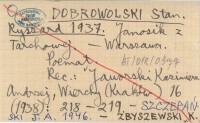 DOBROWOLSKI Stan.
Ryszard 1937. Janosik z
Tarchowej – Warszawa.
Poemat.
Rec.: Jaworski Kazimierz
Andrzej, Wierchy (Kraków) 16
(1938): 218-219. – SZCZEPAŃ-
SKI J. A. 1946. – ZBYSZEWSKI K.